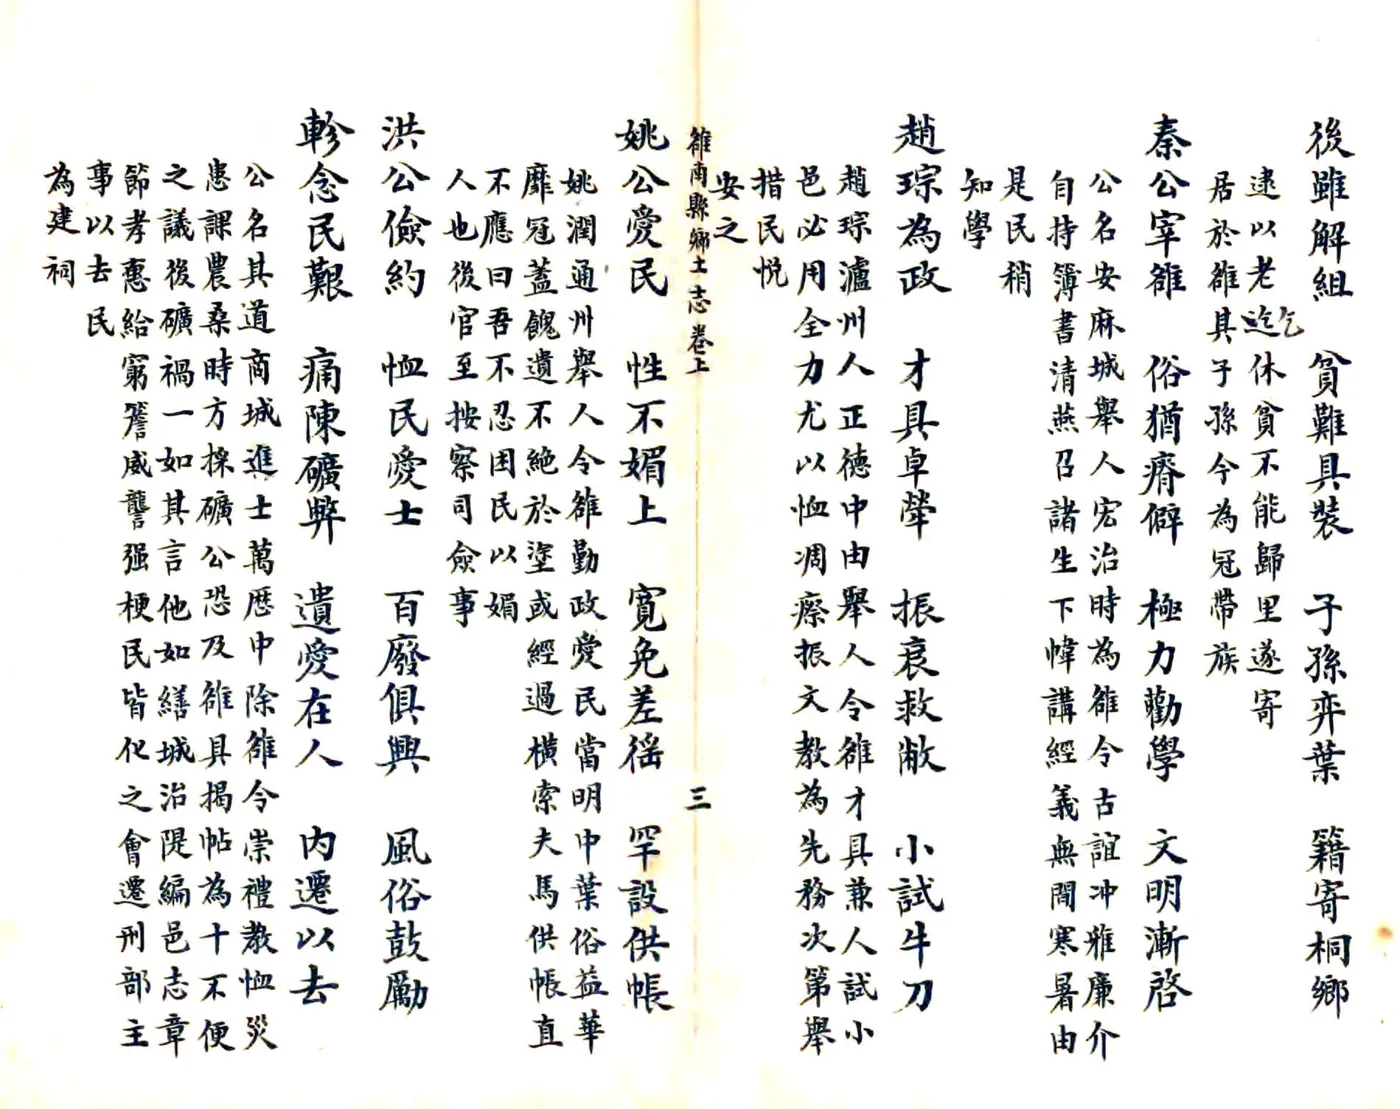 後雖解組　貧難具裝　子孫弈葉　籍寄桐鄉
逮以老迄乞休貧不能歸里遂寄
居於雒其子孫今為冠帶族
秦公宰雒　俗猶瘠僻　極力勸學　文明漸啓
公名安麻城舉人宏治時為雒令古誼冲雅廉介
自持簿書清燕召諸生下幃講經義無間寒暑由
是民稍
知學
趙琮為政　才具卓犖　振衰救敝　小試牛刀
趙琮瀘州人正德中由舉人令雒才具兼人試小
邑必用全力尤以恤凋瘵振文教為先務次第舉
措民悦
安之
雒南縣鄉土志卷上　三
姚公愛民　性不媚上　寬免差徭　罕設供帳
姚潤通州舉人令雒勤政愛民當明中葉俗益華
靡冠蓋餽遺不絶於塗或經過橫索夫馬供帳直
不應曰吾不忍困民以媚
人也後官至按察司僉事
洪公儉約　恤民愛士　百廢俱興　風俗鼓勵
軫念民艱　痛陳礦弊　遺愛在人　內遷以去
公名其道商城進士萬歷中除雒令崇禮教恤災
患課農桑時方採礦公恐及雒具揭帖為十不便
之議後礦禍一如其言他如繕城治隄編邑志章
節孝惠給窮嫠威讋强梗民皆化之會遷刑部主
事以去民
為建祠